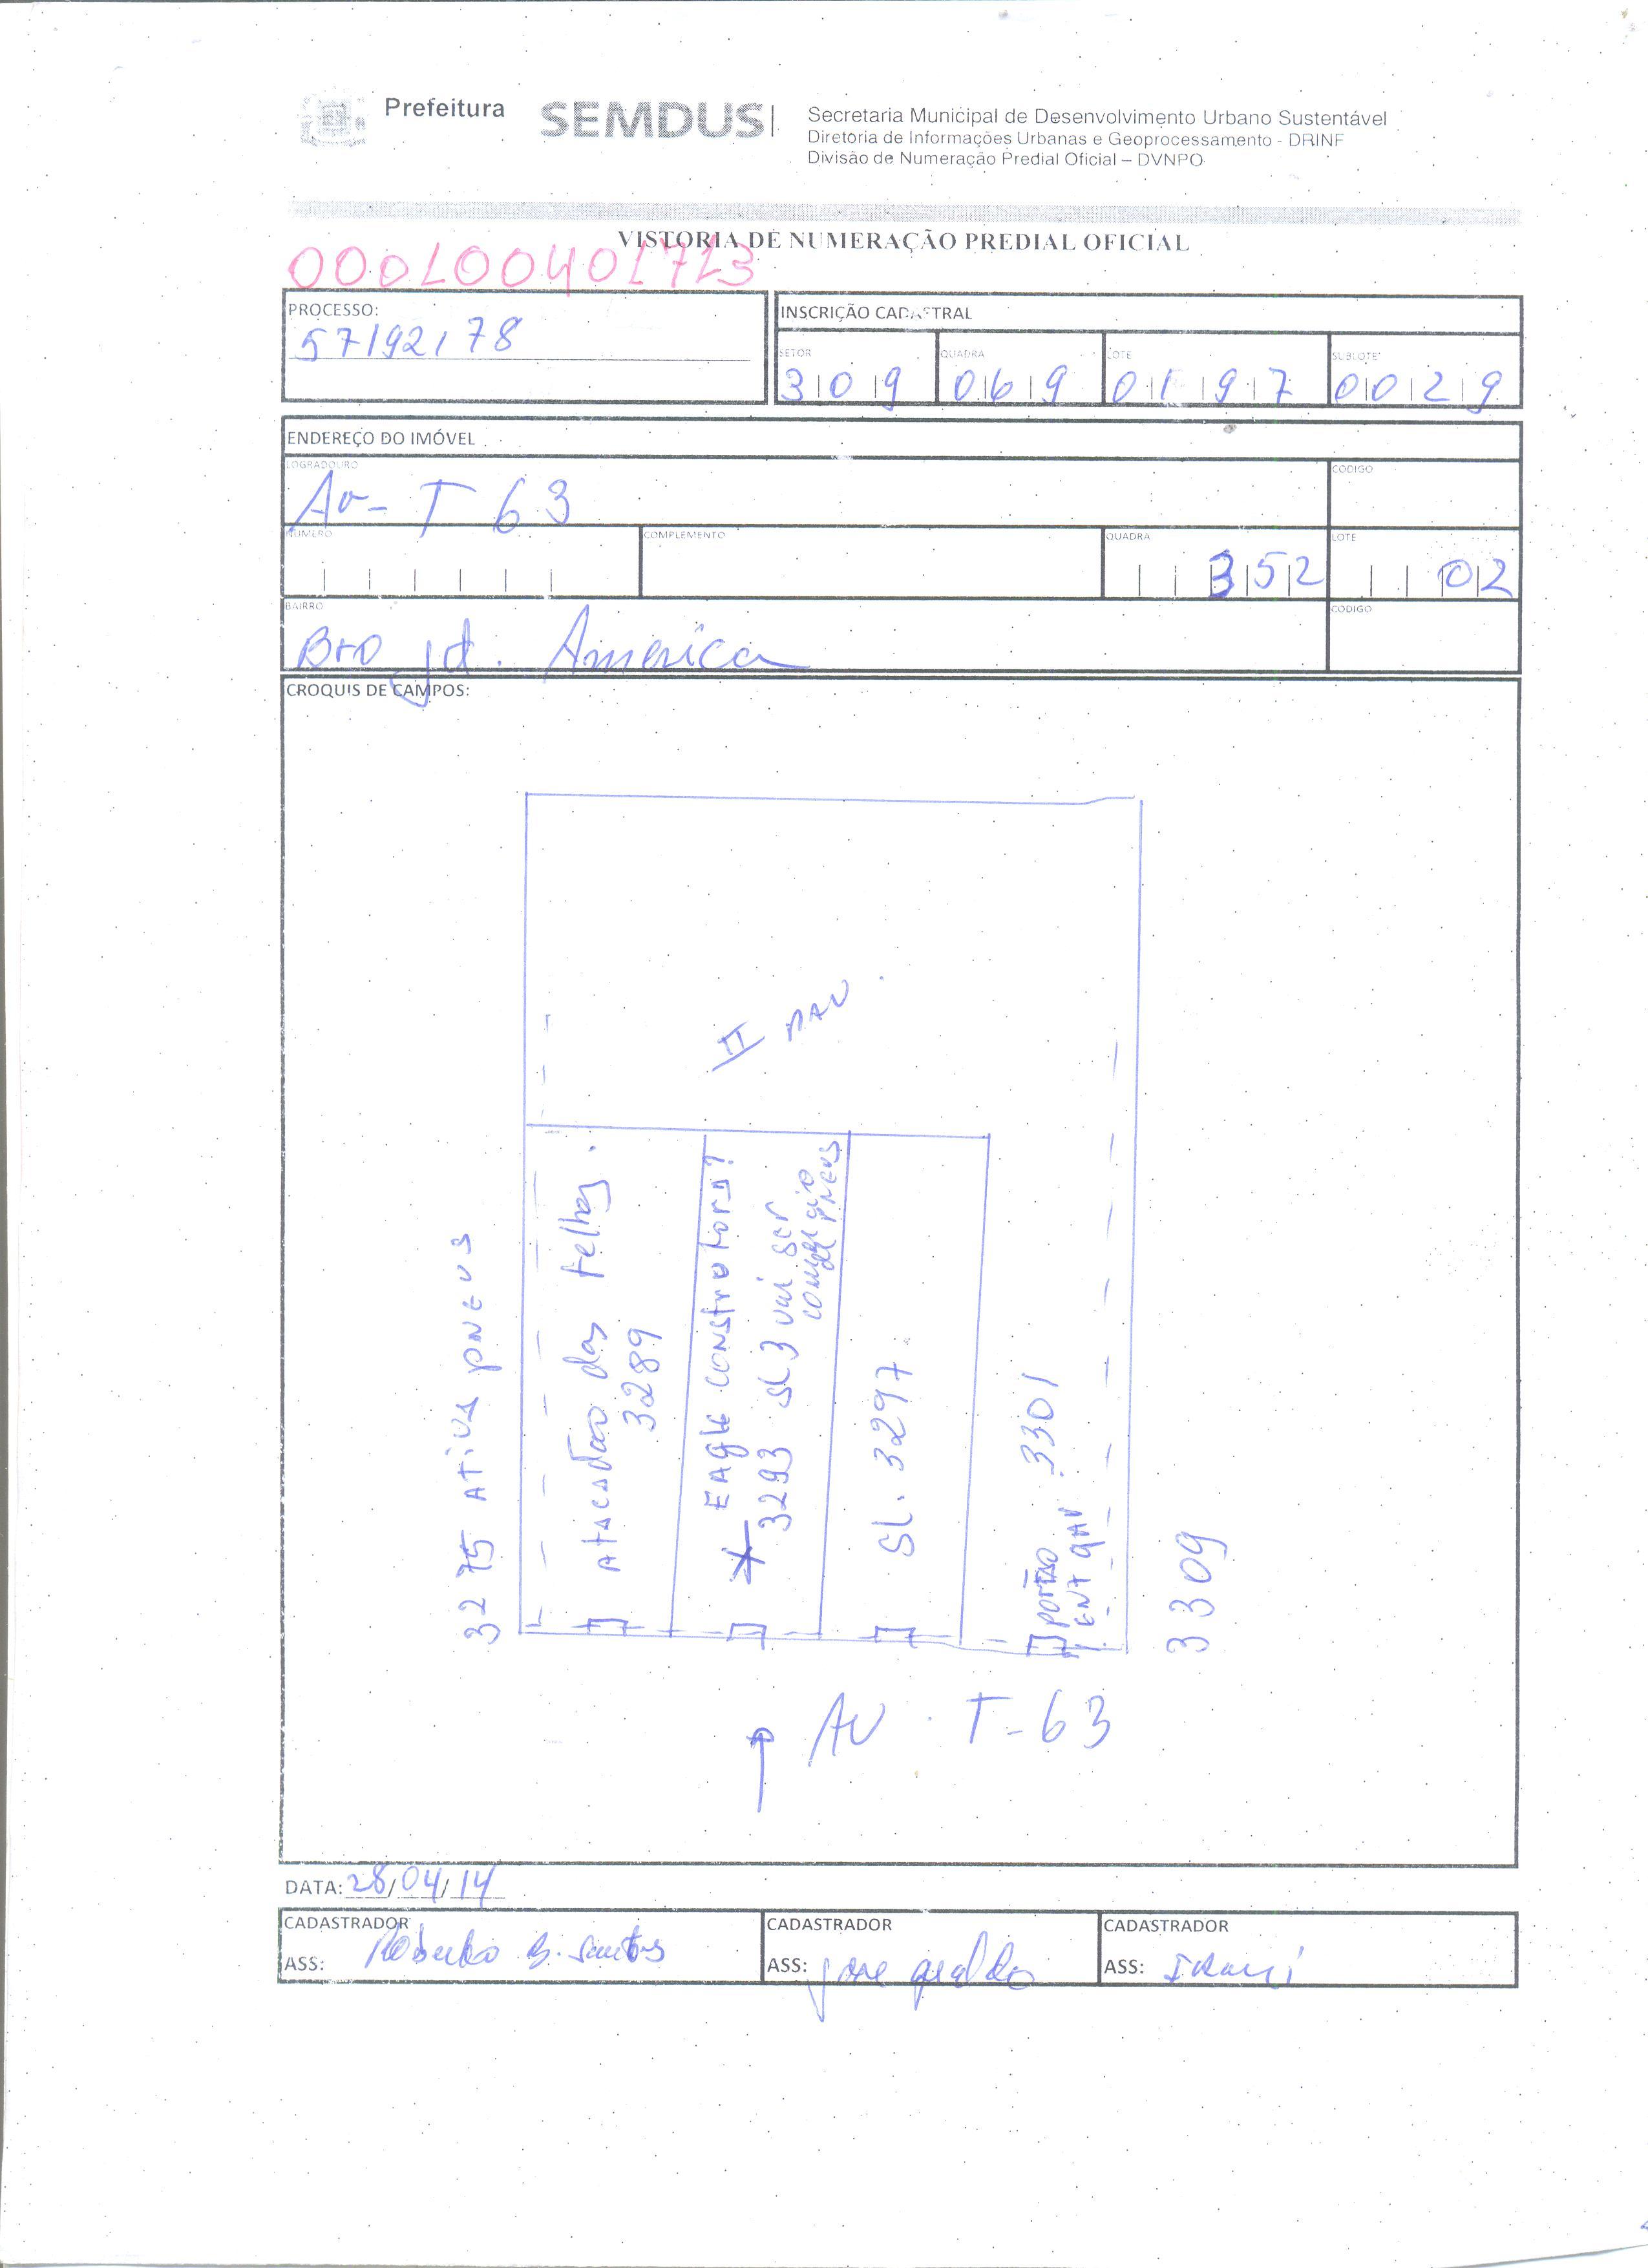 Prefeitura
SEMDUS
Secretaria Municipal de Desenvolvimento Urbano Sustentável
Diretoria de Informações Urbanas e Geoprocessamento - DRINF
Divisão de Numeração Predial Oficial – DVNPO
VISTORIA DE NUMERAÇÃO PREDIAL OFICIAL
000100401713
PROCESSO:
57192178
INSCRIÇÃO CADASTRAL
SETOR QUADRA LOTE SUBLOTE
309 069 0197 0029
ENDEREÇO DO IMÓVEL
LOGRADOURO CODIGO
Av- T 63
NUMERO COMPLEMENTO QUADRA LOTE
352 02
BAIRRO CODIGO
Bro jd. America
CROQUIS DE CAMPOS:
II PAV.
3275 Ativa pneus
Atacadão das telhas.
3289
EAGLE CONSTRUTORA?
* 3293 SL 3 vai ser
comercio
de PNEUS
SL. 3297
PORTÃO 3301
ENT
3309
AV. T-63
DATA: 28/04/14
CADASTRADOR CADASTRADOR CADASTRADOR
ASS: Roberto B. Santos ASS: jose geraldo ASS: Iraci